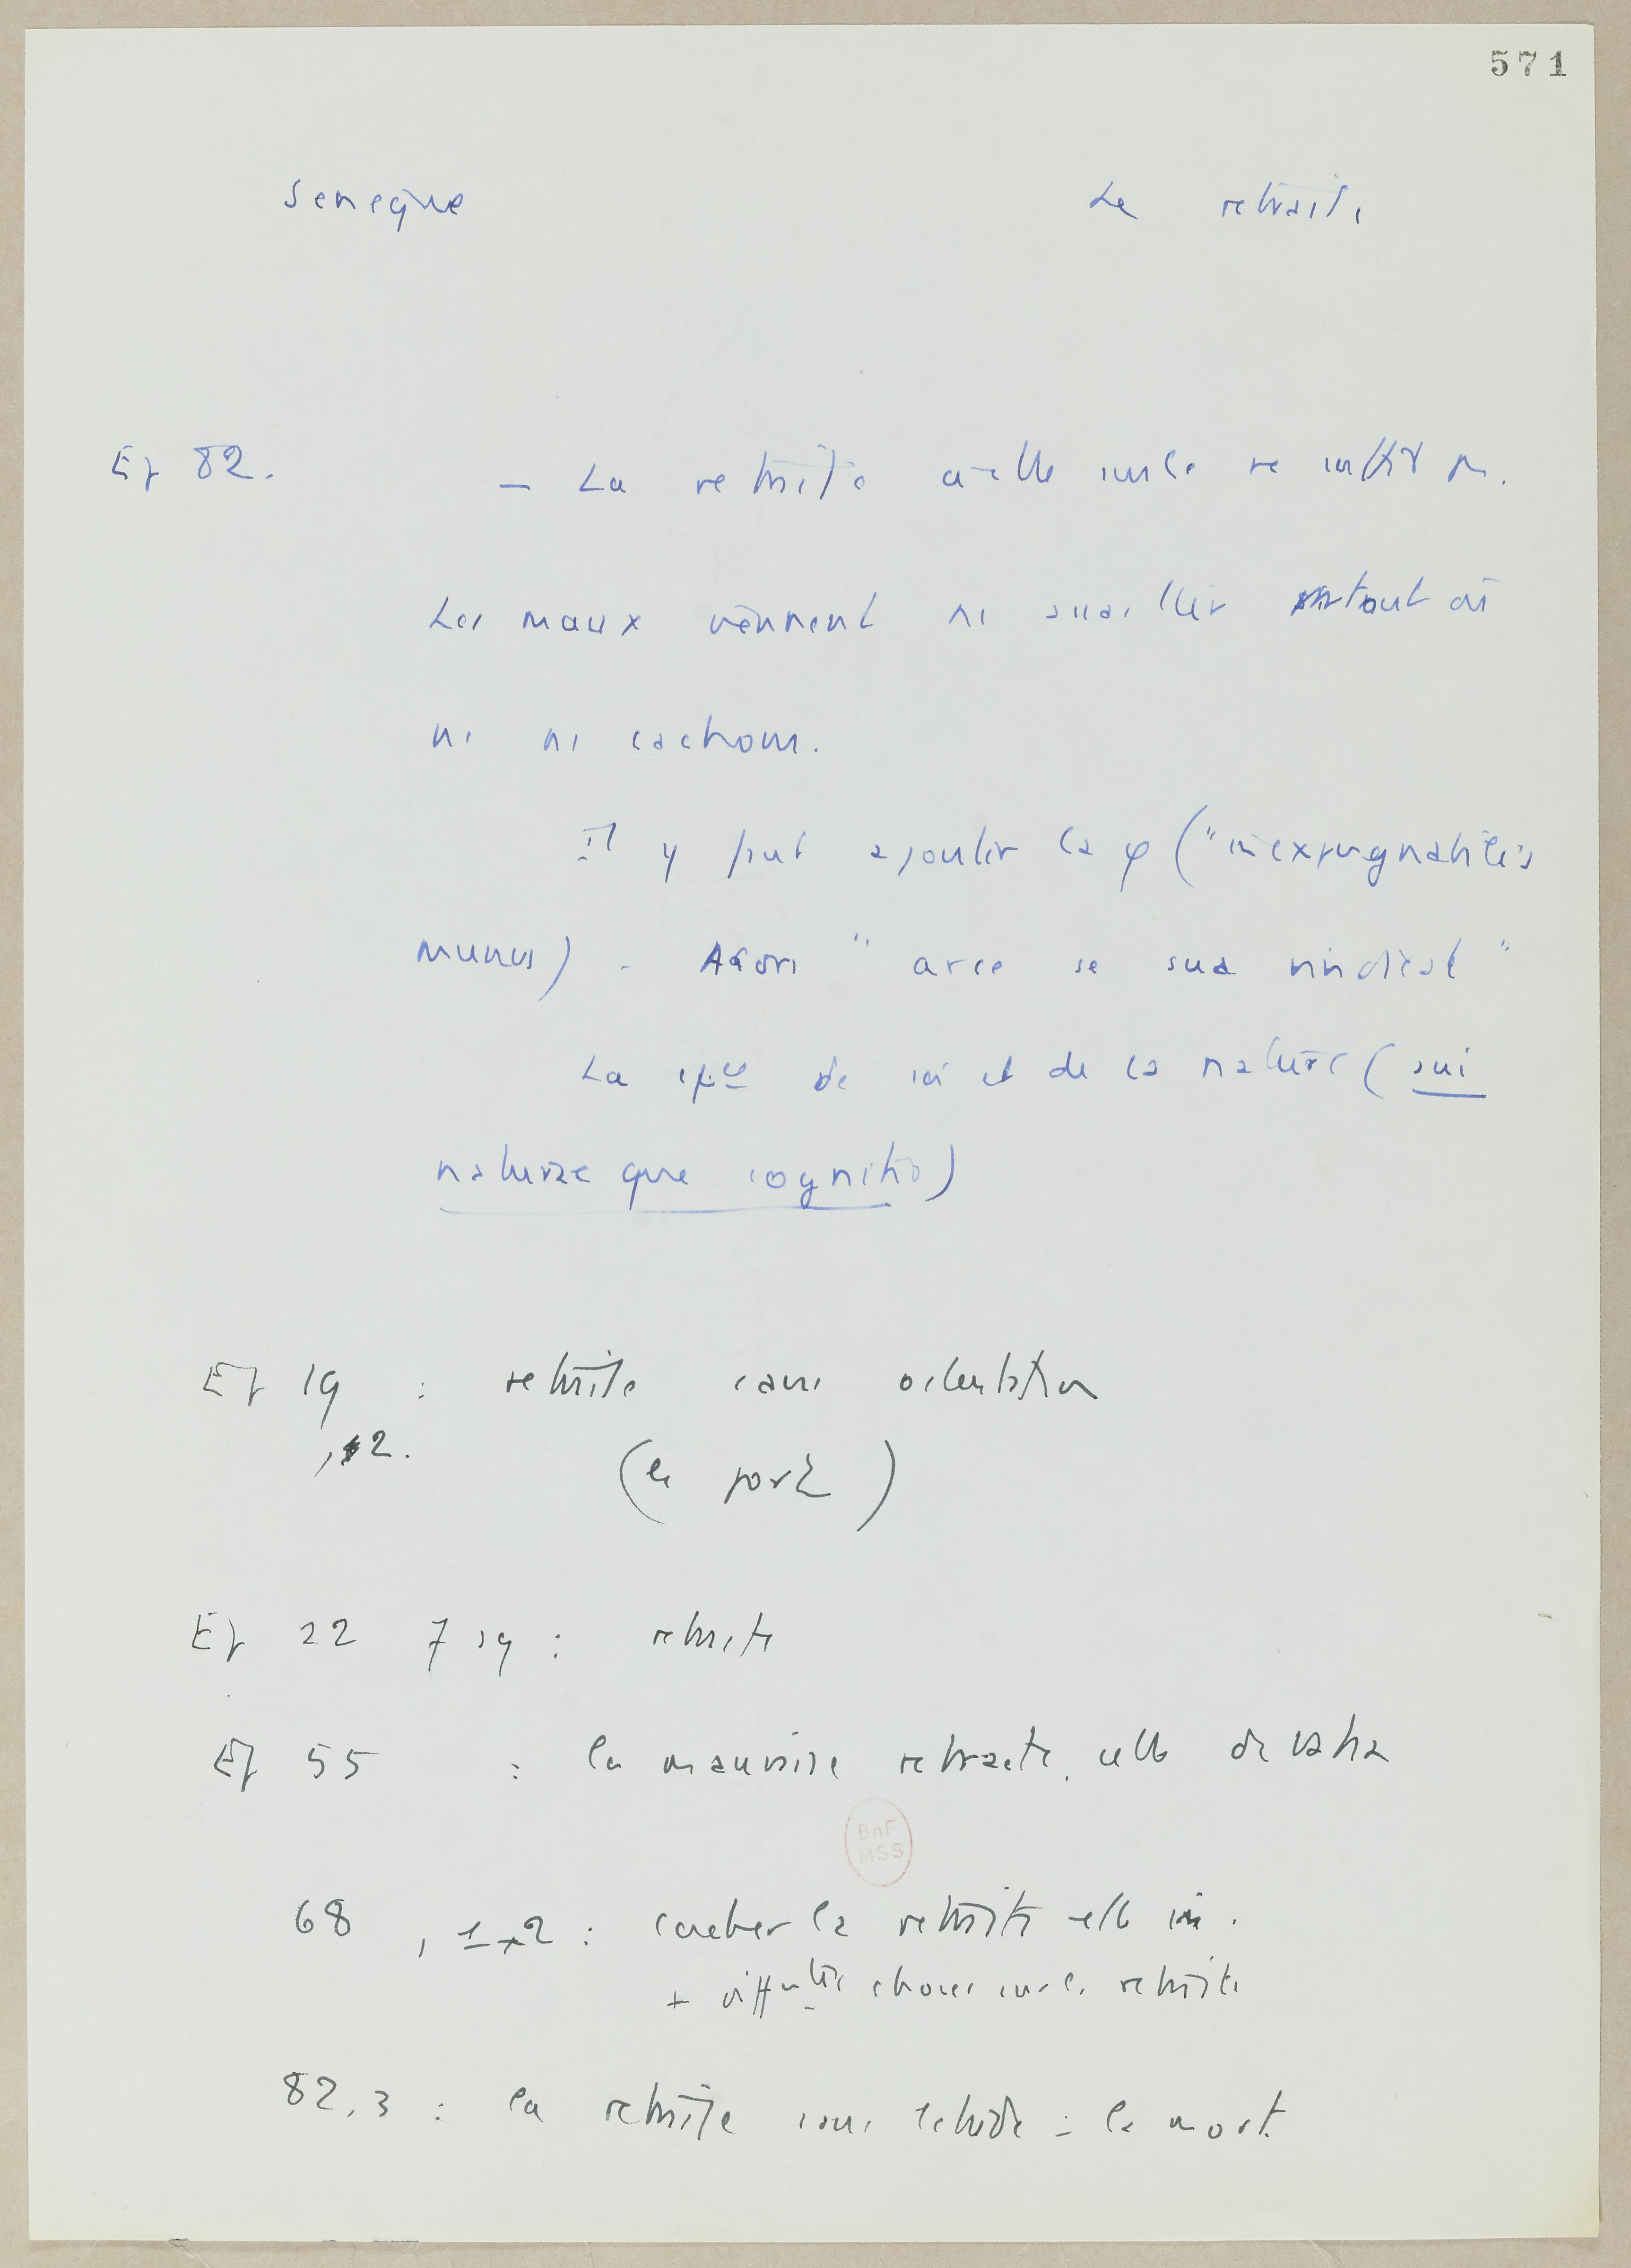 571
Seneque La retraite
Ep 82. – La retraite à elle seule ne suffit pas.
Les maux viennent ns assaillir surtout où
ns ns cachons.
Il y faut ajouter la φ ("inexpugnabilis
murus) - Alors "arce se sua vindicat"
La sce de soi et de la nature (sui
naturaeque cognitio)
Ep 19 : retraite sans ostentation
,2. (le port)
Ep 22 7 sq : retraite
Ep 55 : la mauvaise retraite, celle de Vatia
BnF
MSS
68 , 1-2 : cacher la retraite elle
+ choses sur la retraite
82, 3 : la retraite sans l'étude = la mort.